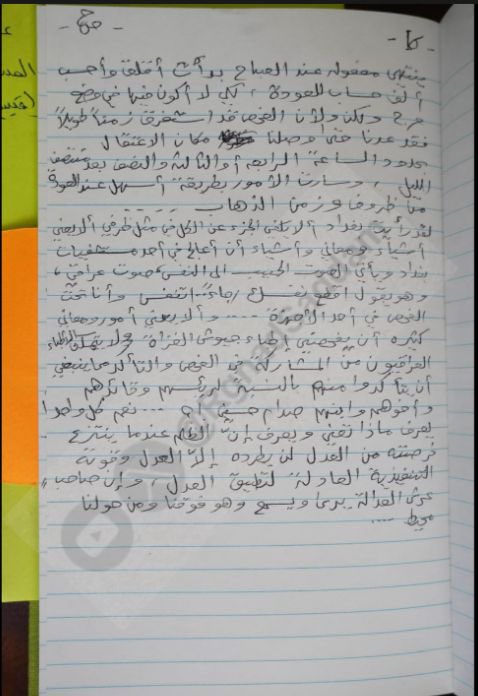 ينتهي مفعوله عند الصباح بدأت أقلق وأحسب
ألف حساب للعودة، لكي لا أكون فيها في وضع
حرج ولكن ولأن الفحص قد استغرق زمناً طويلاً
فقد عدنا حتى وصلنا مكان الاعتقال
بحدود الساعة الرابعة أو الثالثة والنصف بعد منتصف
الليل، وسارت الأمور بطريقة أسهل عند العودة
من ظروف وزمن الذهاب
لقد رأيت بغداد ألا يلغى الجزء عن الكل في مثل ظرفي ألا يعني
أشياء ومعاني وأشياء أن أعالج في أحد مستشفيات
بغداد ويأتي الصوت الحبيب الى النفس، صوت عراقي،
وهو يقول اقطع نفسك رجاءً.. اتنفس وأنا تحت
الفحص في أحد الأجهزة .... وألا يعني أمور ومعاني
كثيرة أن يفحصني أطباء جيوش الغزاة ولا يتمكن الأطباء
العراقيون من المشاركة في الفحص والتأكد مما ينبغي
أن يتأكدوا منهم بالنسبة لرئيسهم وقائدهم
وأخوهم وابنهم صدام حسين أم .... نعم كل واحدة
يعرف ماذا تعني ويعرف إنّ الظلم عندما ينتزع
فرصته من العدل لن يطرده إلاّ العدل وقوته
التنفيذية العادلة لتطبيق العدل، وإن صاحب
عرش العدالة يرى ويسمع وهو فوقنا ومن حولنا
محيط ....